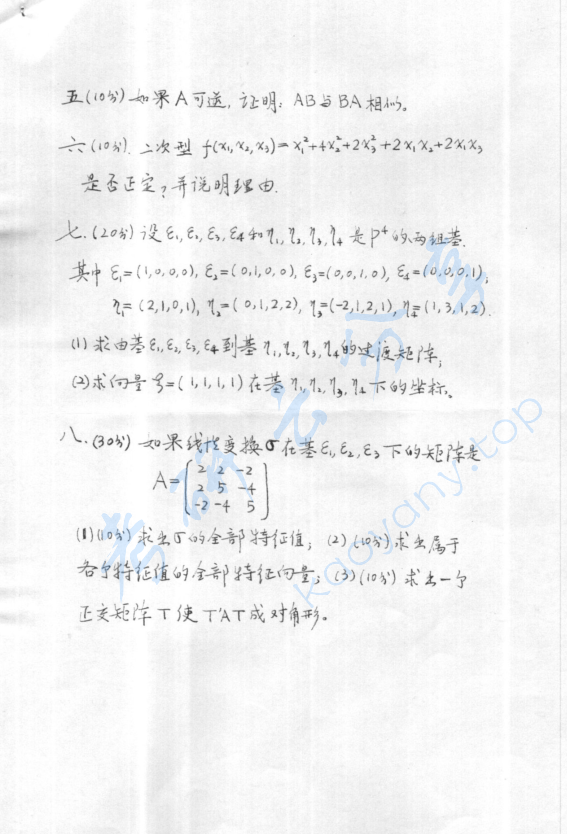 五(10分)如果A可逆,证明:AB与BA相似。
六(10分).二次型 f(x₁,x₂,x₃)=x₁²+4x₂²+2x₃²+2x₁x₂+2x₁x₃
是否正定?并说明理由.
七.(20分)设ε₁,ε₂,ε₃,ε₄和η₁,η₂,η₃,η₄是P⁴的两组基.
其中 ε₁=(1,0,0,0), ε₂=(0,1,0,0), ε₃=(0,0,1,0), ε₄=(0,0,0,1);
η₁=(2,1,0,1), η₂=(0,1,2,2), η₃=(-2,1,2,1), η₄=(1,3,1,2).
(1)求由基ε₁,ε₂,ε₃,ε₄到基η₁,η₂,η₃,η₄的过渡矩阵;
(2)求向量ξ=(1,1,1,1)在基η₁,η₂,η₃,η₄下的坐标。
八.(30分)如果线性变换σ在基ε₁,ε₂,ε₃下的矩阵是
2 2 -2
A= 2 5 -4
-2 -4 5
(1)(10分)求出σ的全部特征值;(2)(10分)求出属于
各个特征值的全部特征向量;(3)(10分)求出一个
正交矩阵T使T'AT成对角形。
kaoyany.top